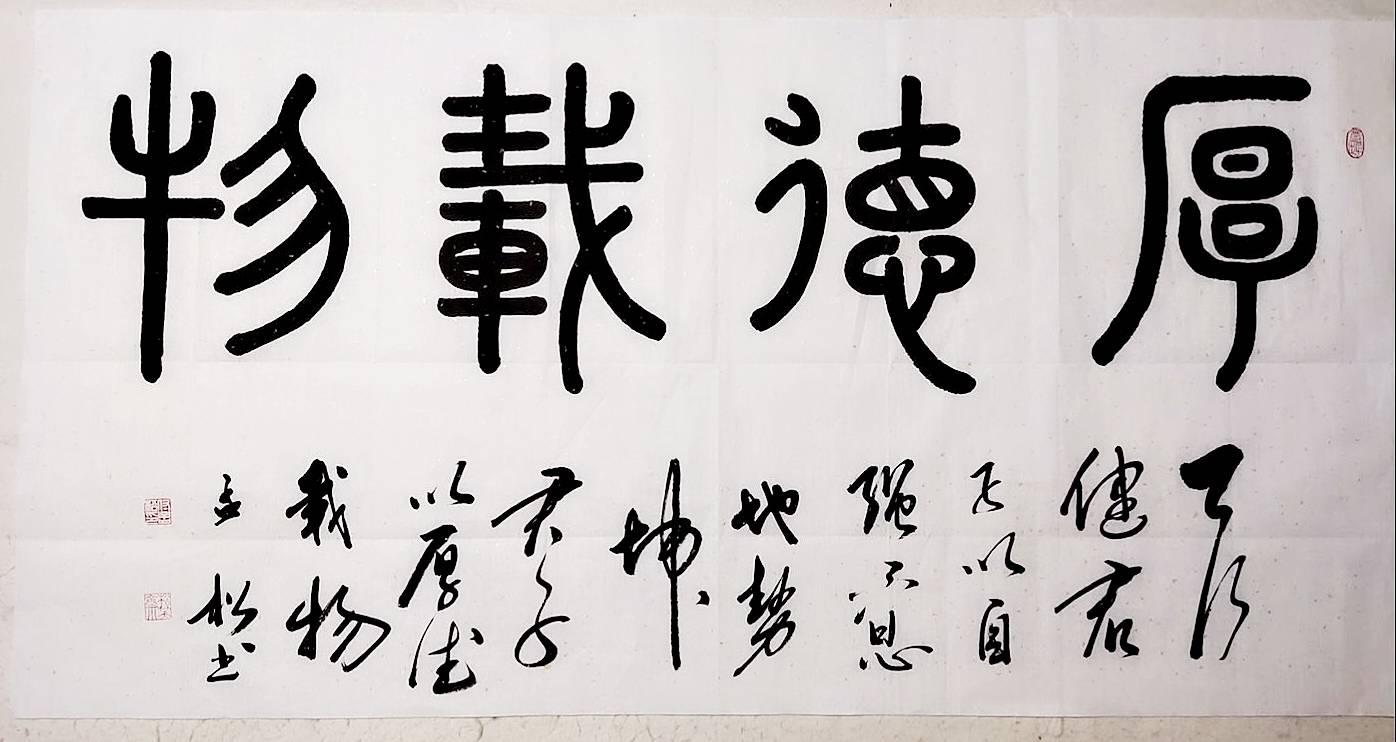 厚德載物
天行
健君
子以自
强不息
地势
坤
君子
以厚德
载物
松书